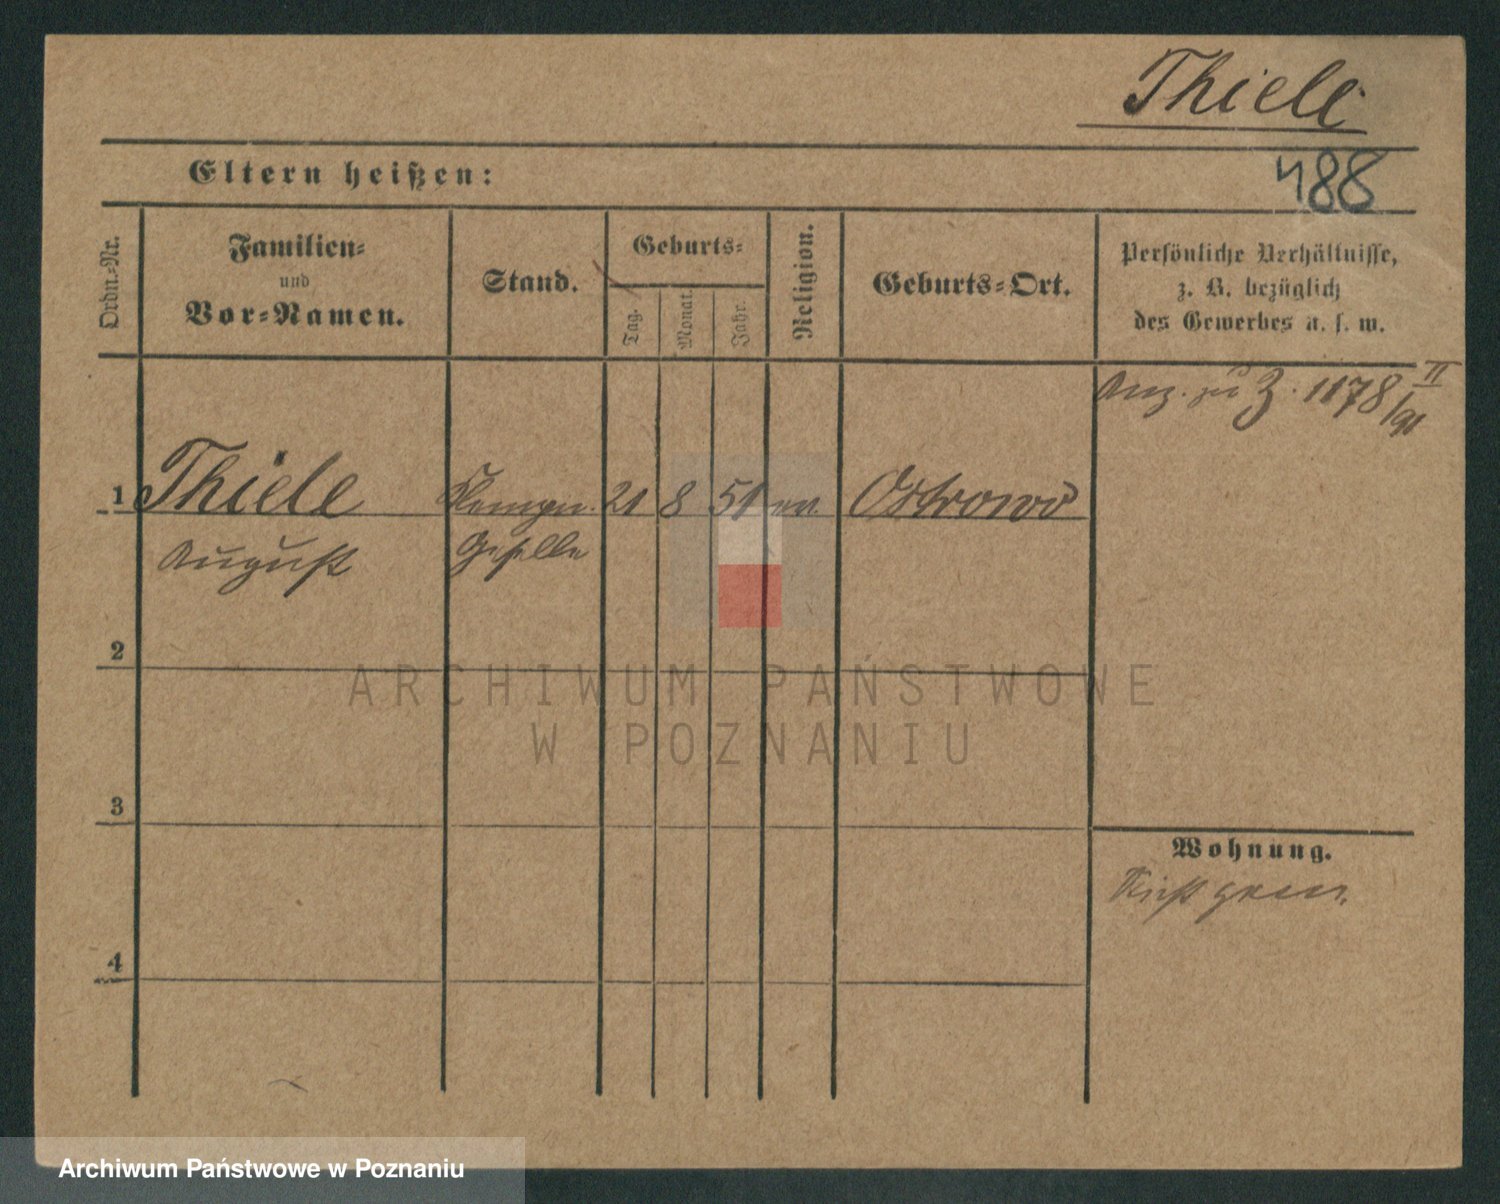 Thiele
488
Eltern heißen:
Ordn.-Nr.
Familien-
und
Vor-Namen.
Stand.
Geburts-
Tag.
Monat.
Jahr.
Religion.
Geburts-Ort.
Persönliche Verhältnisse,
z. B. bezüglich
des Gewerbes u. s. w.
Anz. zu Z. 1178 II/91
1 Thiele Klempn. 21 8 51 ev. Ostrowo
August Geselle
2
ARCHIWUM PAŃSTWOWE
W POZNANIU
3
Wohnung.
4
Archiwum Państwowe w Poznaniu